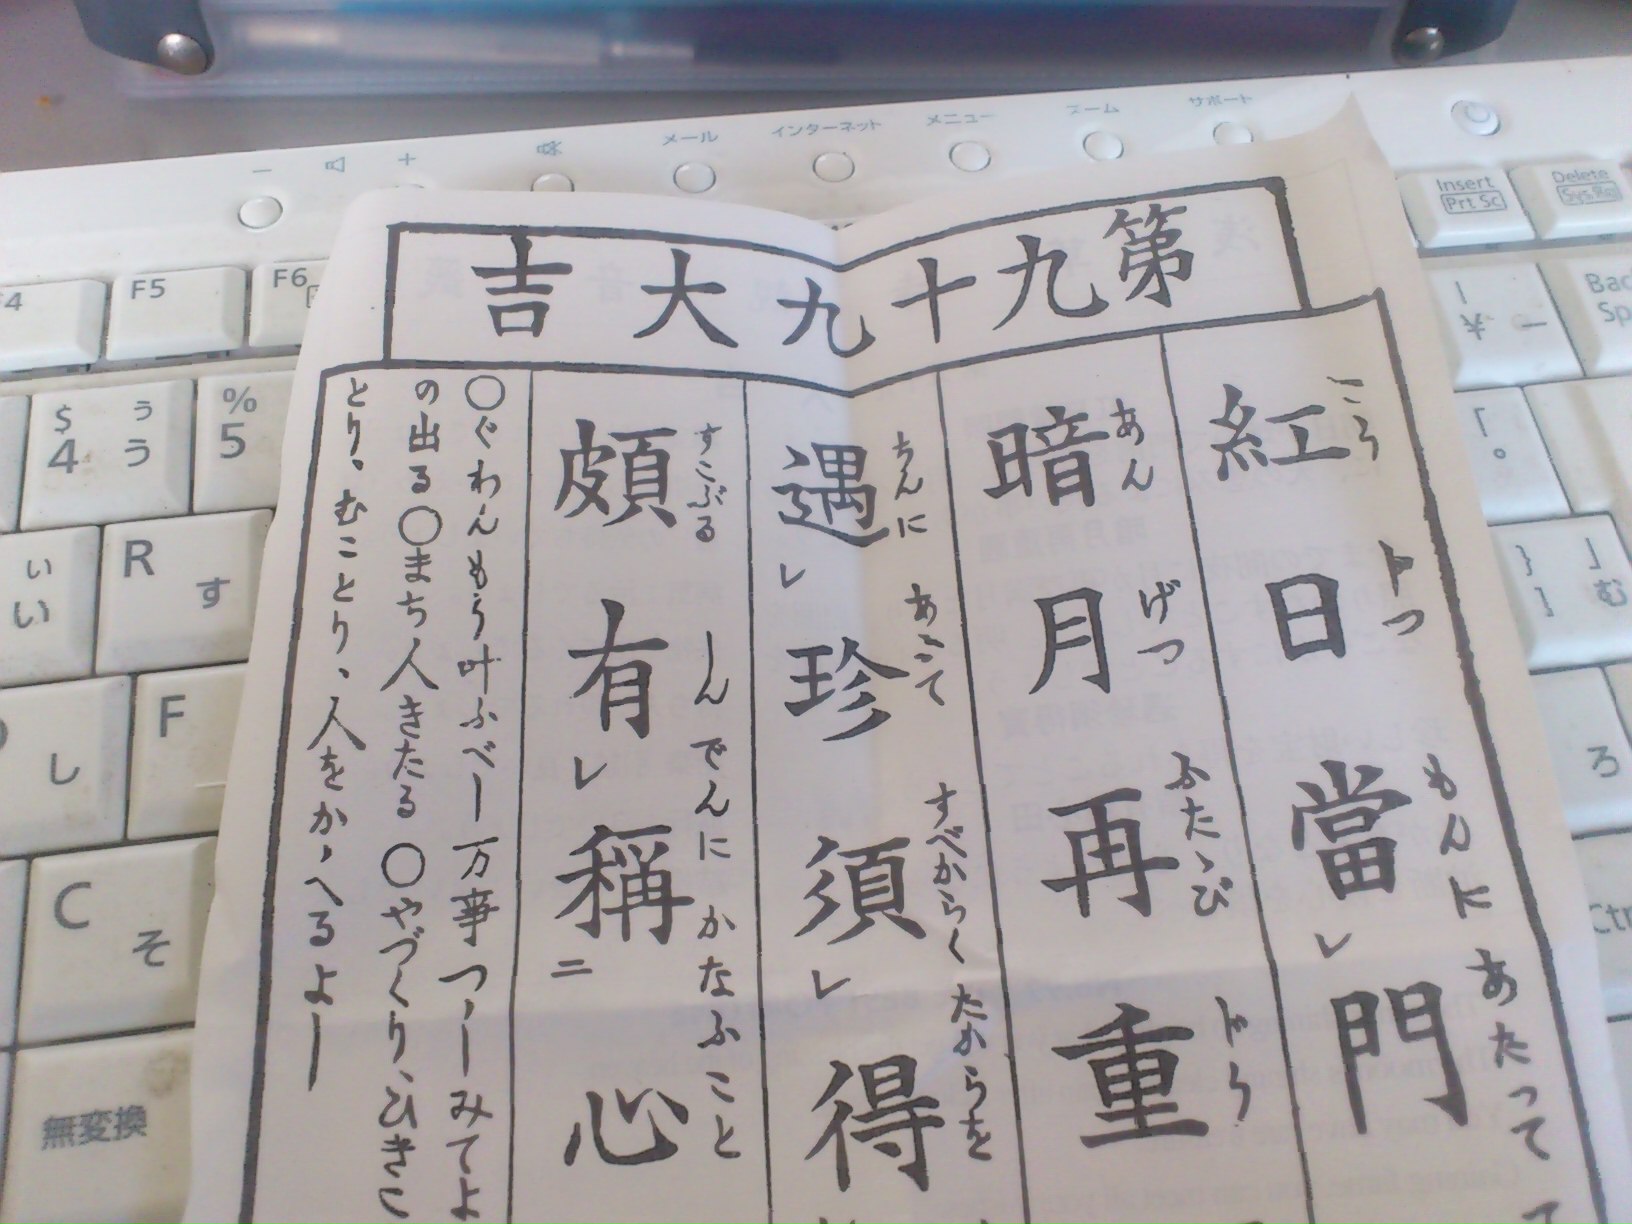 第九十九大吉
紅日當レ門
こう
じつ
もんに
あたって
暗月再重
あん
げつ
ふたゝび
遇レ珍須レ得
ちんに
あふて
すべからく
たからを
頗有レ稱二心
すこぶる
しんでんに
かなふこと
○ぐわんもう叶ふべし万事つゝしみてよ
の出る○まち人きたる○やづくり、ひきこ
とり、むことり、人をかゝへるよし
メール
インターネット
メニュー
ズーム
サポート
Insert
Prt Sc
Delete
F5
F6
$
4
う
ぅ
%
5
R
す
い
ぃ
F
し
C
そ
無変換
¥
ー
む
ろ